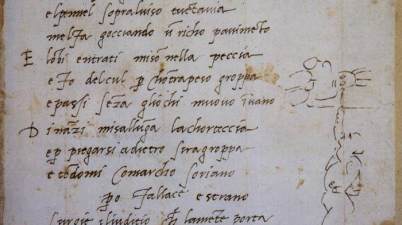 elpennel sopraluiso tuctauia
melfa gocciando ũ richo pauimẽto
E lõbi entrati misõ nella peccia
e fo del cul p chõtrapeso groppa
e passi sẽza gliochi muouo ĩuano
D inãzi misallũga lachorteccia
e p piegarsi adietro siragroppa
e tẽdomi comarcho soriano
po fallace e strano
surgie iliuditio ch̃ lamẽte porta